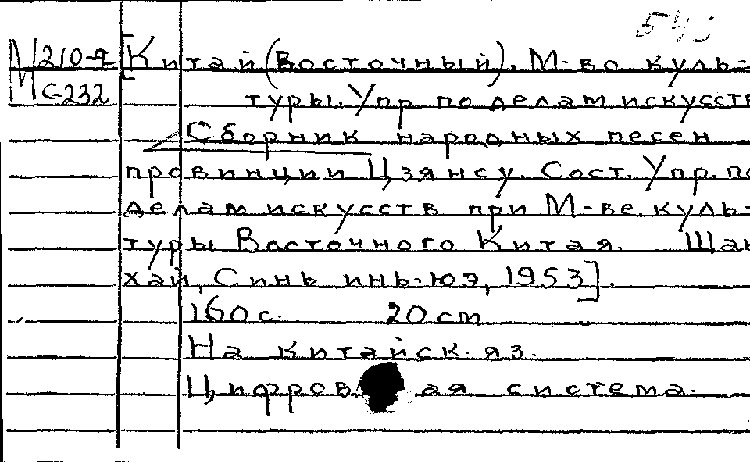 М210-2 [Китай (Восточный). М-во куль-
М С-232 туры. Упр. по делам искусств
Сборник народных песен
провинции Цзянсу. Сост. Упр. по
делам искусств при М-ве куль-
туры Восточного Китая. Шан
хай, Синь инь-юэ, 1953].
160 с. 20 cm
На китайск. яз.
Цифров ая система.